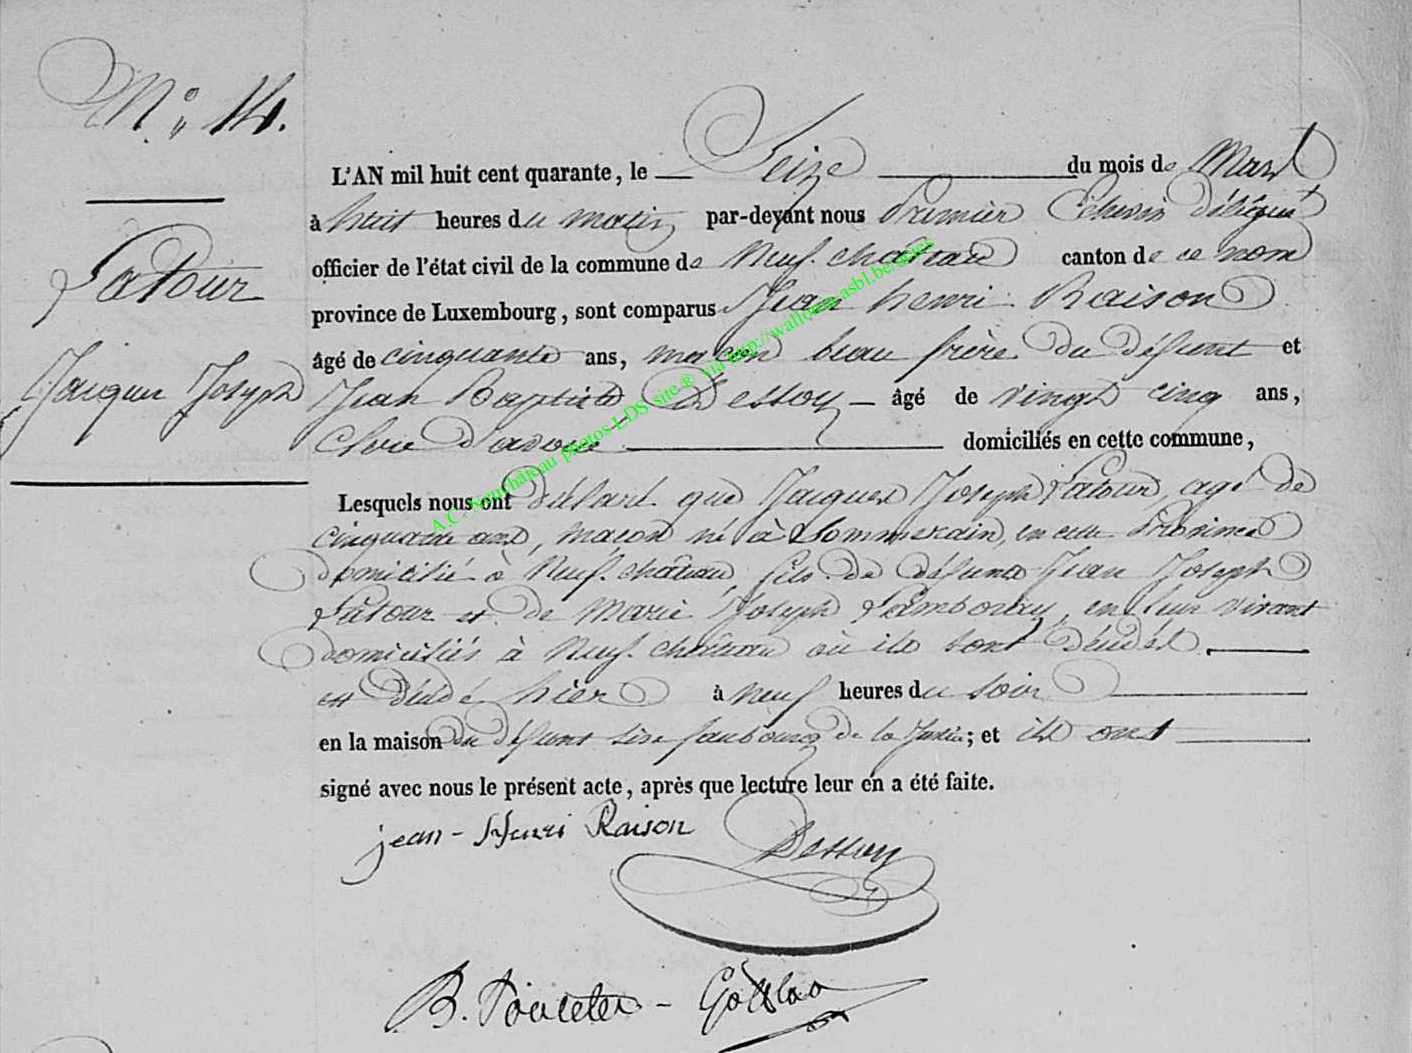 N.° 14.
L'AN mil huit cent quarante, le Seize du mois de Mars
à huit heures du matin par-devant nous Premier Echevin délégué
officier de l'état civil de la commune de Neufchâteau canton de ce nom
province de Luxembourg, sont comparus Jean henri Raison
âgé de cinquante ans, maçon beau frère du défunt et
Jean Baptiste Dessoy âgé de vingt cinq ans,
Clerc d'avoué domiciliés en cette commune,
Latour
Jacques Joseph
Lesquels nous ont déclaré que Jacques Joseph Latour, agé de
cinquante ans, maçon né à Sommerain, en cette Province
domicilié à Neufchâteau, fils de défunts Jean Joseph
Latour et de Marie Joseph en leur vivant
domiciliés à Neufchâteau où ils sont décédés
est décédé hier à neuf heures du soir
en la maison du défunt sise faubourg de la ; et ils ont
signé avec nous le présent acte, après que lecture leur en a été faite.
jean-Henri Raison
Dessoy
B. Gosseau
A.C. Neufchâteau photos LDS site ® via http://wallonia-asbl.be/actes